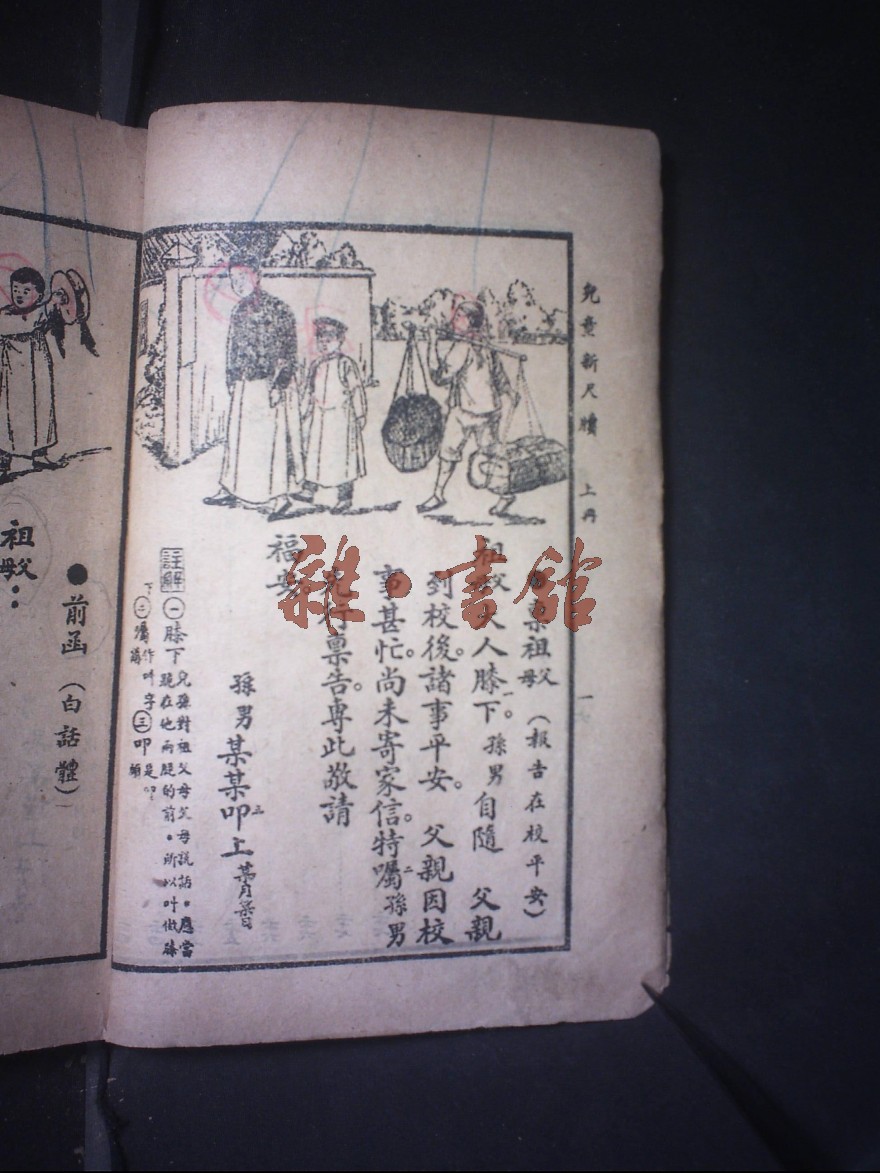 兒童新尺牘 上冊 一
●稟祖父母(報告在校平安)
祖父母大人膝下。一孫男自隨 父親
到校後。諸事平安。 父親因校
事甚忙。尚未寄家信。特囑二孫男
先行稟告。專此敬請
福安。
孫男某某叩三上 某月某日
註解 ㊀膝下 兒孫對祖父母父母說話。應當跪在他兩腿的前。所以叫做膝下 ㊁囑 作叫字講 ㊂叩 是叩頭
●前函(白話體)
祖父母:
雜·書館